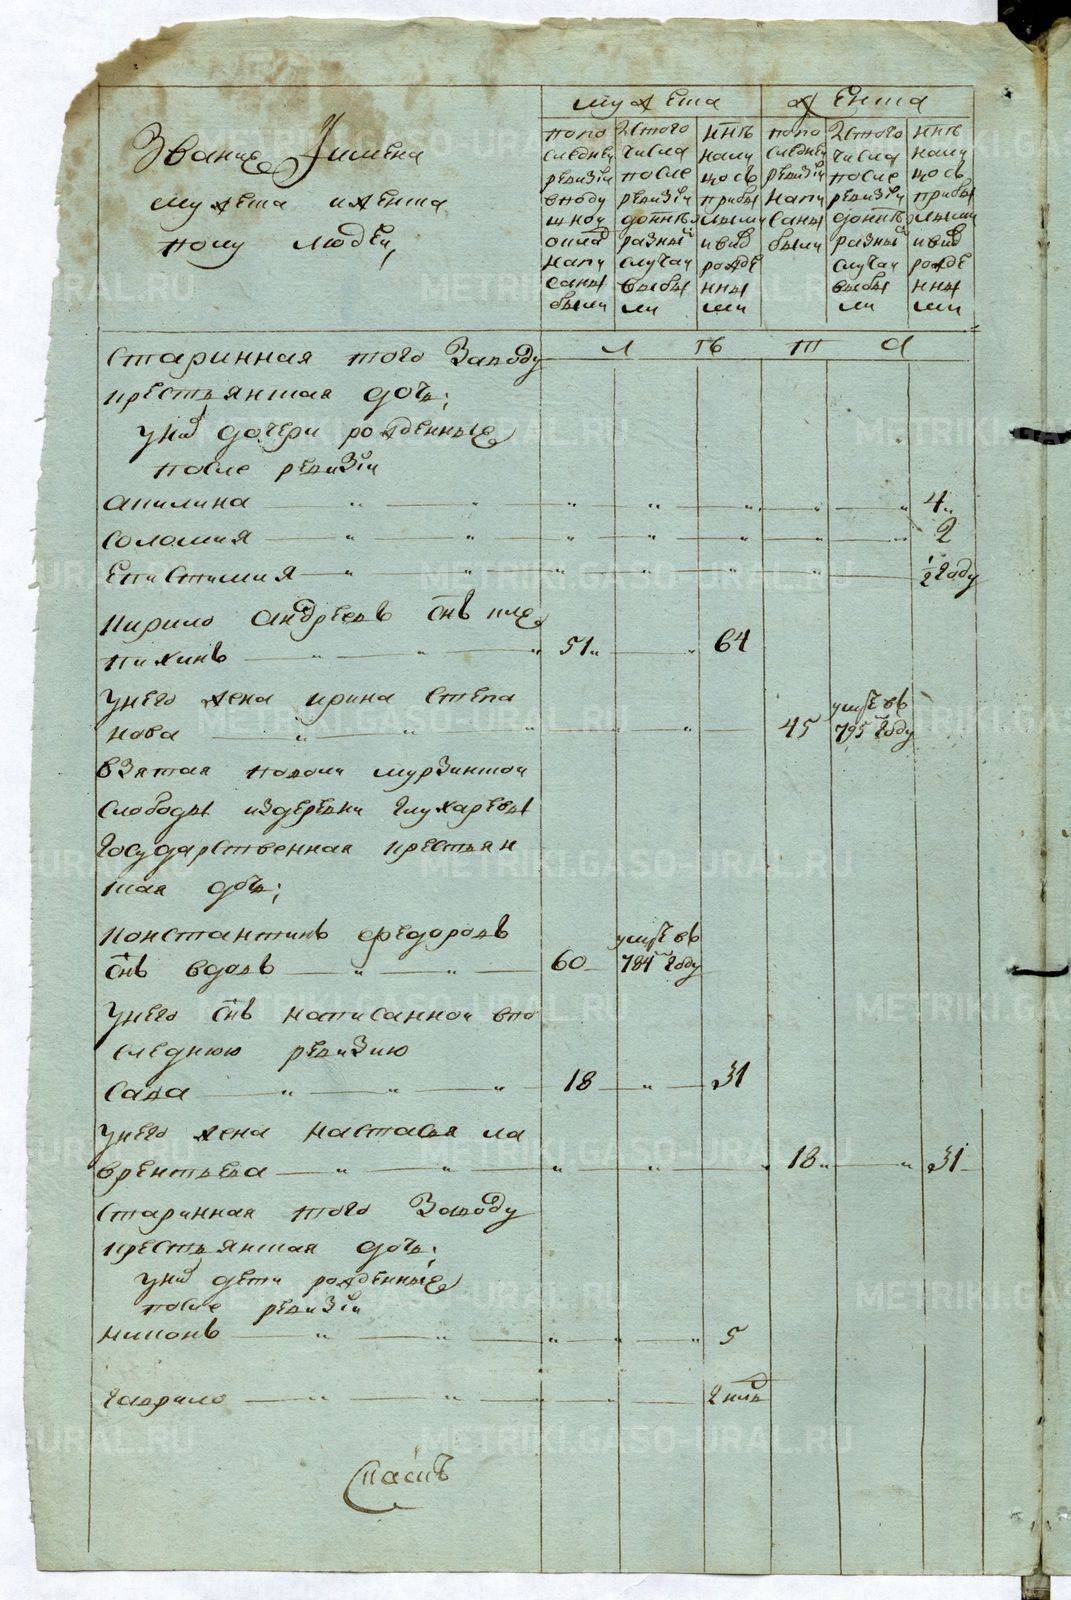 мужеска
женска
Звание и имена
мужеска и женска
полу людей,
попо следней ревизїи вподушной оклад написаны были
Ζстого числа после ревизїи дотнѣ разный случаи выбыли
ннѣ налицо съ прибылыми ивнов рожденными
попо следней ревизїи написаны были
Ζстого числа после ревизїи дотнѣ разный случаи выбыли
ннѣ налицо съ прибылыми ивнов рожденными
л ѣ т а
старинная того Заводу
крестьянская дочь;
уних дочери рожденные
после ревизїи
акилина 4
соломия 2
Епистимия ½ году
кирило андреевъ снъ пле
тихинъ 51 64
унего жена ирина степа
нова 45 умре въ 795 году
взятая подчи мурзинской
слободы издеревни глухаревы
государственная крестьян
ская дочь;
константинъ федоровъ
снъ вдовъ 60 умре въ 784 году
унего снъ написанной впо
следнюю ревизию
сава 18 31
унего жена настасья ла
врентьева 18 31
старинная того Заводу
крестьянская дочь;
уних дети рожденные
после ревизїи
никонъ 5
гаврило 2 нлв
Спаситъ
METRIKI.GASO-URAL.RU